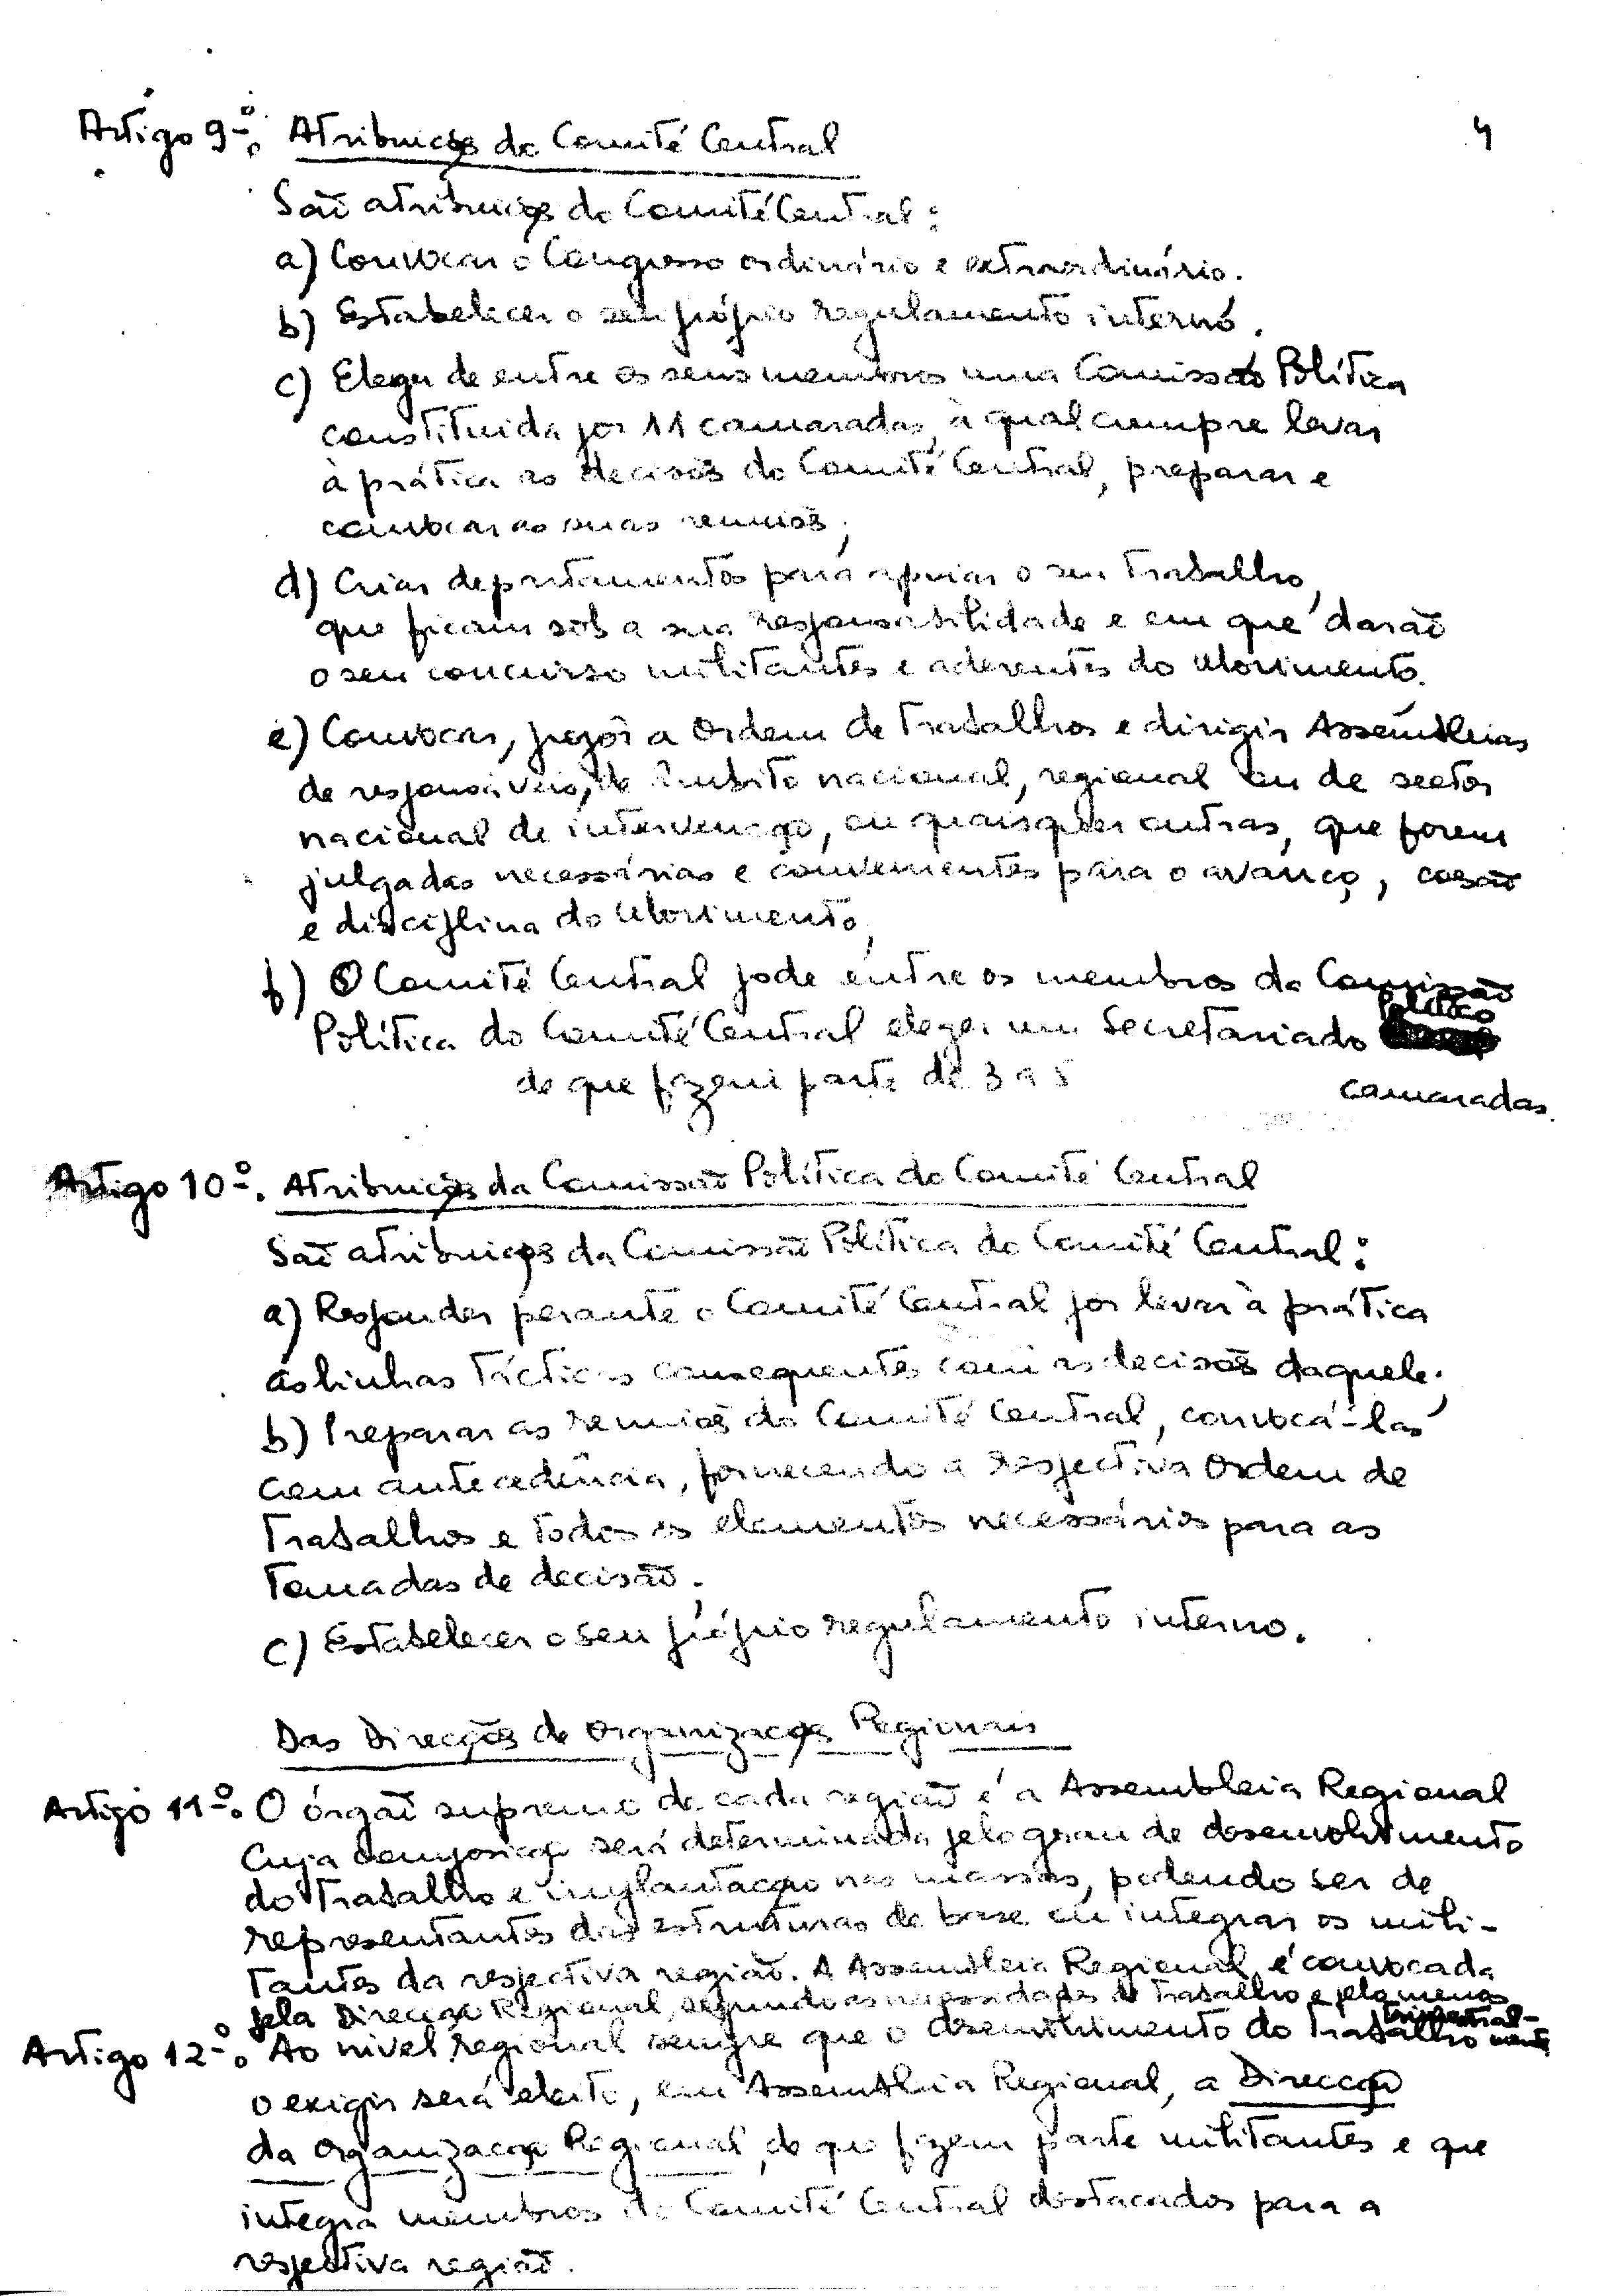 4
Artigo 9º. Atribuições do Comité Central
São atribuições do Comité Central:
a) Convocar o Congresso ordinário e extraordinário.
b) Estabelecer o seu próprio regulamento interno.
c) Eleger de entre os seus membros uma Comissão Política
constituida por 11 camaradas, à qual cumpre levar
à prática as decisões do Comité Central, preparar e
convocar as suas reuniões;
d) Criar departamentos para apoiar o seu trabalho,
que ficam sob a sua responsabilidade e em que darão
o seu concurso militantes e aderentes do Movimento.
e) Convocar, propôr a Ordem de Trabalhos e dirigir Assembleias
de responsáveis, de âmbito nacional, regional ou de sector
nacional de intervenção, ou quaisquer outras, que forem
julgadas necessárias e convenientes para o avanço, coesão
e disciplina do Movimento;
f) O Comité Central pode entre os membros da Comissão
Política do Comité Central eleger um Secretariado Político
de que fazem parte de 3 a 5 camaradas.
Artigo 10º. Atribuições da Comissão Política do Comité Central
São atribuições da Comissão Política do Comité Central:
a) Responder perante o Comité Central por levar à prática
as linhas tácticas consequentes com as decisões daquele;
b) Preparar as reuniões do Comité Central, convocá-las
com antecedência, fornecendo a respectiva Ordem de
Trabalhos e todos os elementos necessários para as
tomadas de decisão;
c) Estabelecer o seu próprio regulamento interno.
Das Direcções de Organizações Regionais
Artigo 11º. O órgão supremo de cada região é a Assembleia Regional
cuja composição será determinada pelo grau de desenvolvimento
do trabalho e implantação nas massas, podendo ser de
representantes das estruturas de base ou integrar os mili-
tantes da respectiva região. A Assembleia Regional é convocada
pela Direcção Regional, segundo as necessidades do trabalho e pelo menos
trimestral-
mente
Artigo 12º. Ao nivel regional sempre que o desenvolvimento do trabalho
o exigir será eleito, em Assembleia Regional, a Direcção
da Organização Regional, de que fazem parte militantes e que
integra membros do Comité Central destacados para a
respectiva região.